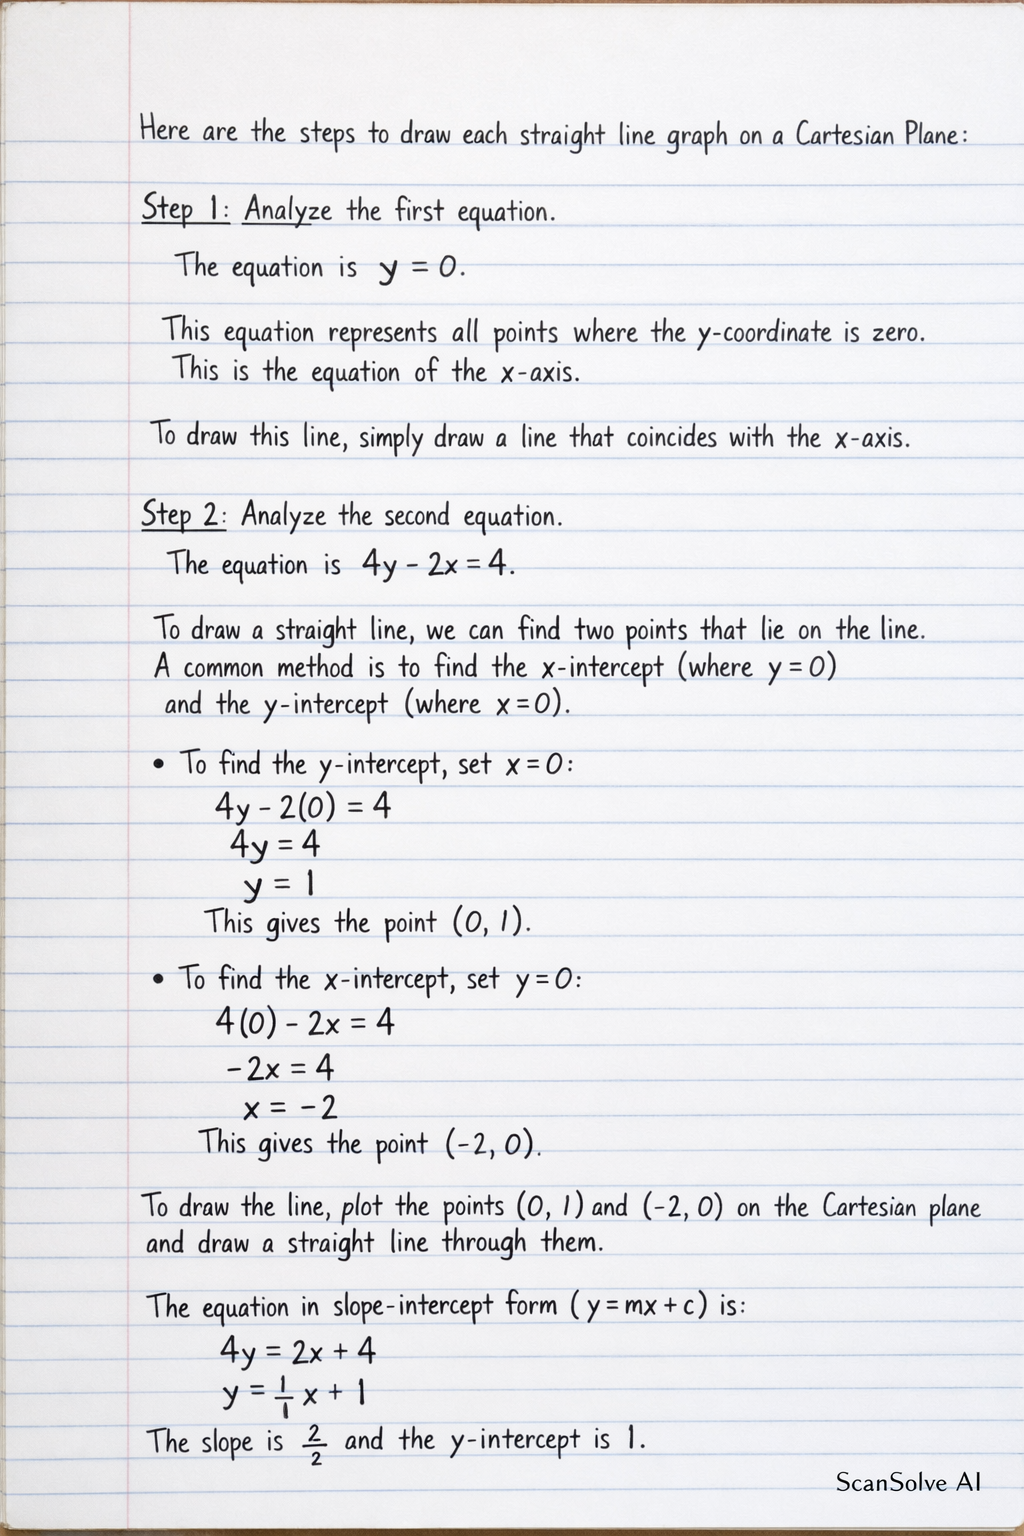 Here are the steps to draw each straight line graph on a Cartesian Plane:
Step 1: Analyze the first equation.
The equation is y = 0.
This equation represents all points where the y-coordinate is zero.
This is the equation of the x-axis.
To draw this line, simply draw a line that coincides with the x-axis.
Step 2: Analyze the second equation.
The equation is 4y - 2x = 4.
To draw a straight line, we can find two points that lie on the line.
A common method is to find the x-intercept (where y = 0)
and the y-intercept (where x = 0).
• To find the y-intercept, set x = 0:
4y - 2(0) = 4
4y = 4
y = 1
This gives the point (0, 1).
• To find the x-intercept, set y = 0:
4(0) - 2x = 4
-2x = 4
x = -2
This gives the point (-2, 0).
To draw the line, plot the points (0, 1) and (-2, 0) on the Cartesian plane
and draw a straight line through them.
The equation in slope-intercept form (y = mx + c) is:
4y = 2x + 4
y = 1/1 x + 1
The slope is 2/2 and the y-intercept is 1.
ScanSolve AI